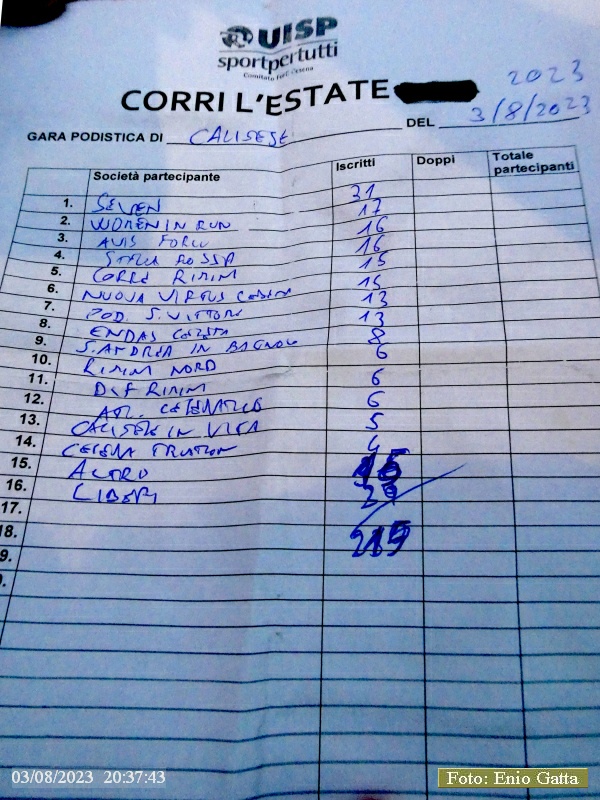 UISP
sportpertutti
Comitato Forlì-Cesena
CORRI L'ESTATE 2023
GARA PODISTICA DI CALISESE DEL 3/8/2023
Società partecipante Iscritti Doppi Totale partecipanti
1. SEVEN 31
2. WOMEN IN RUN 17
3. AVIS FORLI 16
4. STELLA ROSSA 16
5. CORRE RIMINI 15
6. NUOVA VIRTUS CESENA 15
7. POD. S. VITTORE 13
8. ENDAS CESENA 13
9. S. ANDREA IN BAGNOLO 8
10. RIMINI NORD 6
11. RIMINI 6
12. ATL. CESENATICO 6
13. CALISESE IN VITA 5
14. CESENA TRIATHLON 4
15. ALTRO
16. LIBERI
17.
18. 215
9.
03/08/2023 20:37:43
Foto: Enio Gatta